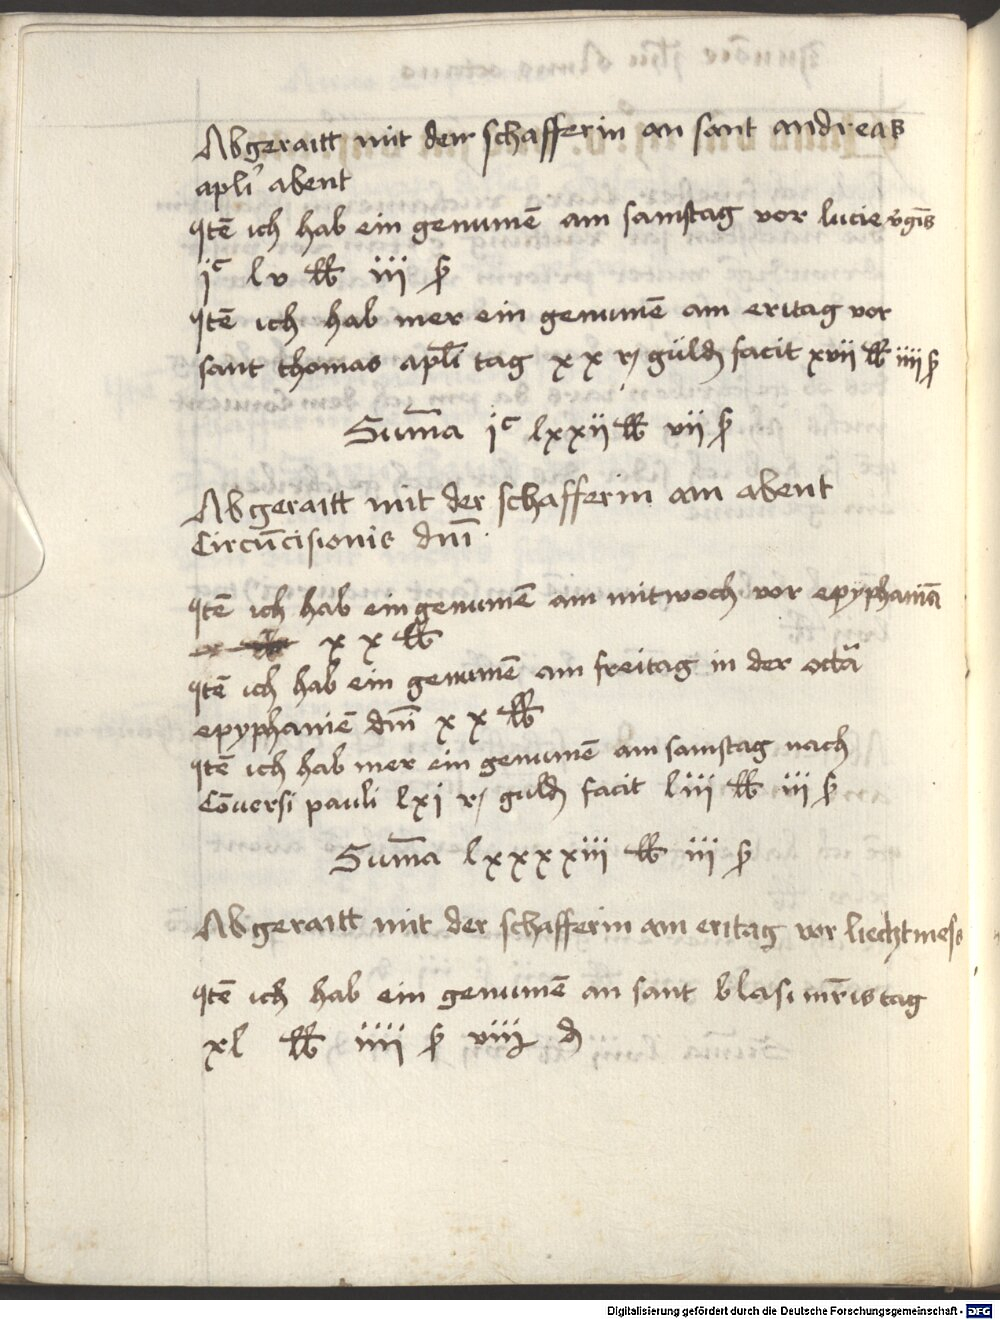 Abgeraitt mit der schafferin an sant andreas
apl̄i abent
Itē ich hab ein genumē am samstag vor lucie v̄gīs
jᶜ lv lb iii ß
Itē ich hab mer ein genumē am eritag vor
sant thomas apl̄i tag xx r/ guld̄ facit xvii lb iiii ß
Sum̄a jᶜ lxxii lb vii ß
Abgeraitt mit der schafferin am abent
Circūcisionis dn̄i
Itē ich hab ein genumē am mitwoch vor epyphaniā
xx lb
Itē ich hab ein genumē am freitag in der octā
epyphanie dn̄i xx lb
Itē ich hab mer ein genumē am samstag nach
Cōuersi pauli lxi r/ guld̄ facit liii lb iii ß
Sum̄a lxxxxiii lb iii ß
Abgeraitt mit der schafferin am eritag vor liechtmess
Itē ich hab ein genumē an sant blasi mr̄is tag
xl lb iiii ß viii d
Digitalisierung gefördert durch die Deutsche Forschungsgemeinschaft - DFG